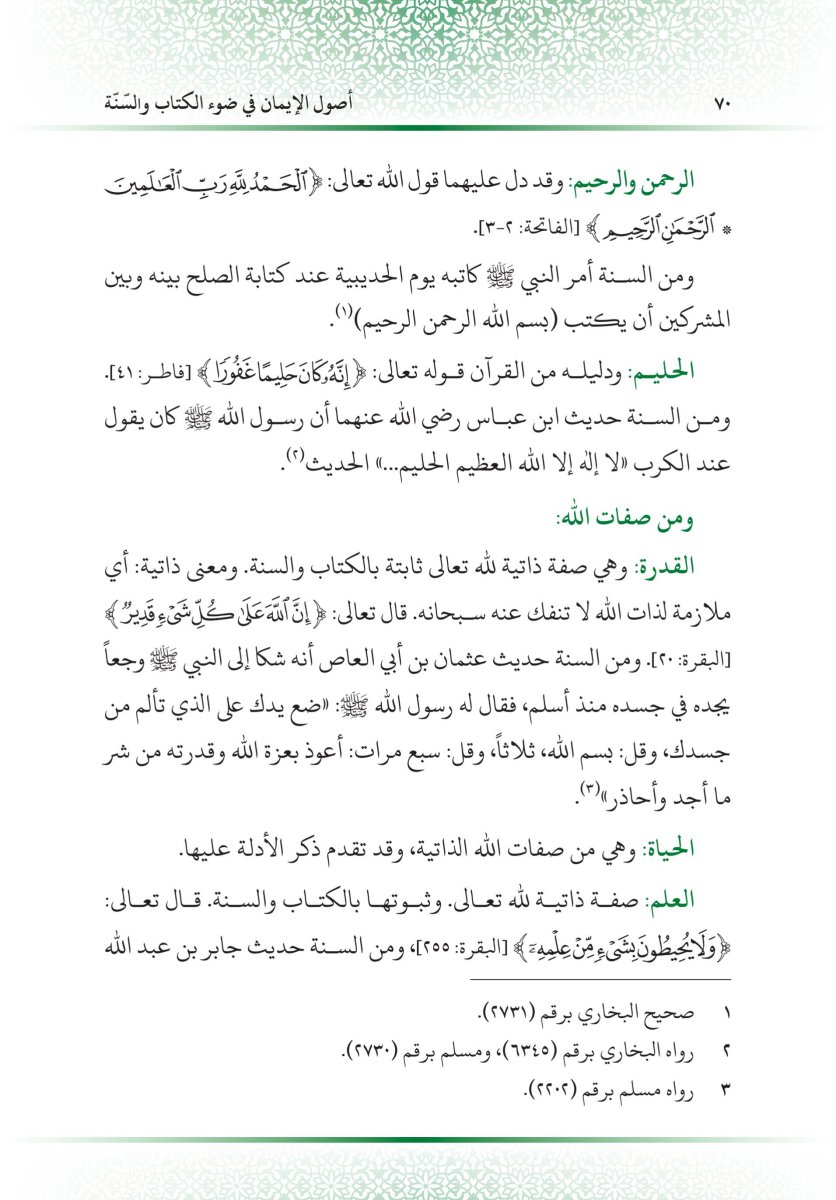 ٧٠ أصول الإيمان في ضوء الكتاب والسّنّة
الرحمن والرحيم: وقد دل عليهما قول الله تعالى: ﴿ٱلْحَمْدُ لِلَّهِ رَبِّ ٱلْعَـٰلَمِينَ
* ٱلرَّحْمَـٰنِ ٱلرَّحِيمِ﴾ [الفاتحة: ٢-٣].
ومن السنة أمر النبي ﷺ كاتبه يوم الحديبية عند كتابة الصلح بينه وبين
المشركين أن يكتب (بسم الله الرحمن الرحيم)(١).
الحليم: ودليله من القرآن قوله تعالى: ﴿إِنَّهُۥ كَانَ حَلِيمًا غَفُورًا﴾ [فاطر: ٤١].
ومن السنة حديث ابن عباس رضي الله عنهما أن رسول الله ﷺ كان يقول
عند الكرب «لا إلٰه إلا الله العظيم الحليم...» الحديث(٢).
ومن صفات الله:
القدرة: وهي صفة ذاتية لله تعالى ثابتة بالكتاب والسنة. ومعنى ذاتية: أي
ملازمة لذات الله لا تنفك عنه سبحانه. قال تعالى: ﴿إِنَّ ٱللَّهَ عَلَىٰ كُلِّ شَىْءٍ قَدِيرٌ﴾
[البقرة: ٢٠]. ومن السنة حديث عثمان بن أبي العاص أنه شكا إلى النبي ﷺ وجعاً
يجده في جسده منذ أسلم، فقال له رسول الله ﷺ: «ضع يدك على الذي تألم من
جسدك، وقل: بسم الله، ثلاثاً، وقل: سبع مرات: أعوذ بعزة الله وقدرته من شر
ما أجد وأحاذر»(٣).
الحياة: وهي من صفات الله الذاتية، وقد تقدم ذكر الأدلة عليها.
العلم: صفة ذاتية لله تعالى. وثبوتها بالكتاب والسنة. قال تعالى:
﴿وَلَا يُحِيطُونَ بِشَىْءٍ مِّنْ عِلْمِهِۦٓ﴾ [البقرة: ٢٥٥]، ومن السنة حديث جابر بن عبد الله
١ صحيح البخاري برقم (٢٧٣١).
٢ رواه البخاري برقم (٦٣٤٥)، ومسلم برقم (٢٧٣٠).
٣ رواه مسلم برقم (٢٢٠٢).